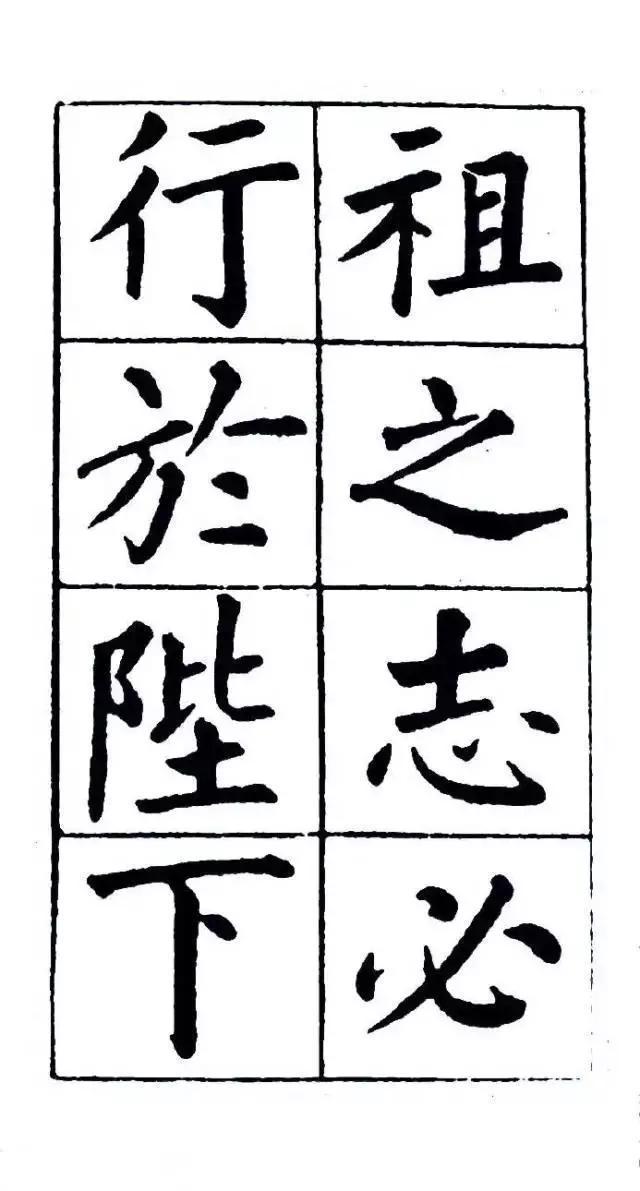 祖之志必
行於陛下